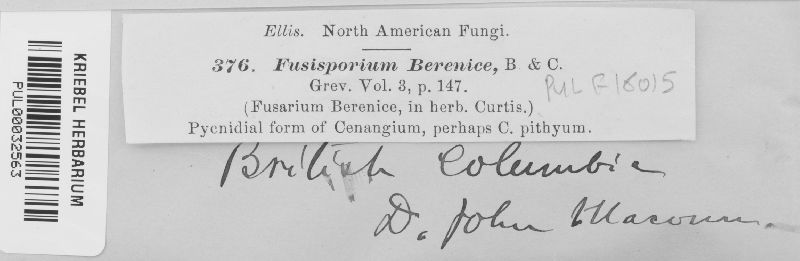 Ellis. North American Fungi.
376. Fusisporium Berenice, B & C.
Grev. Vol. 3, p. 147.
PUL F18015
(Fusarium Berenice, in herb. Curtis.)
Pycnidial form of Cenangium, perhaps C. pithyum.
British Columbia
D. John Macoun.
KRIEBEL HERBARIUM
PUL00032563